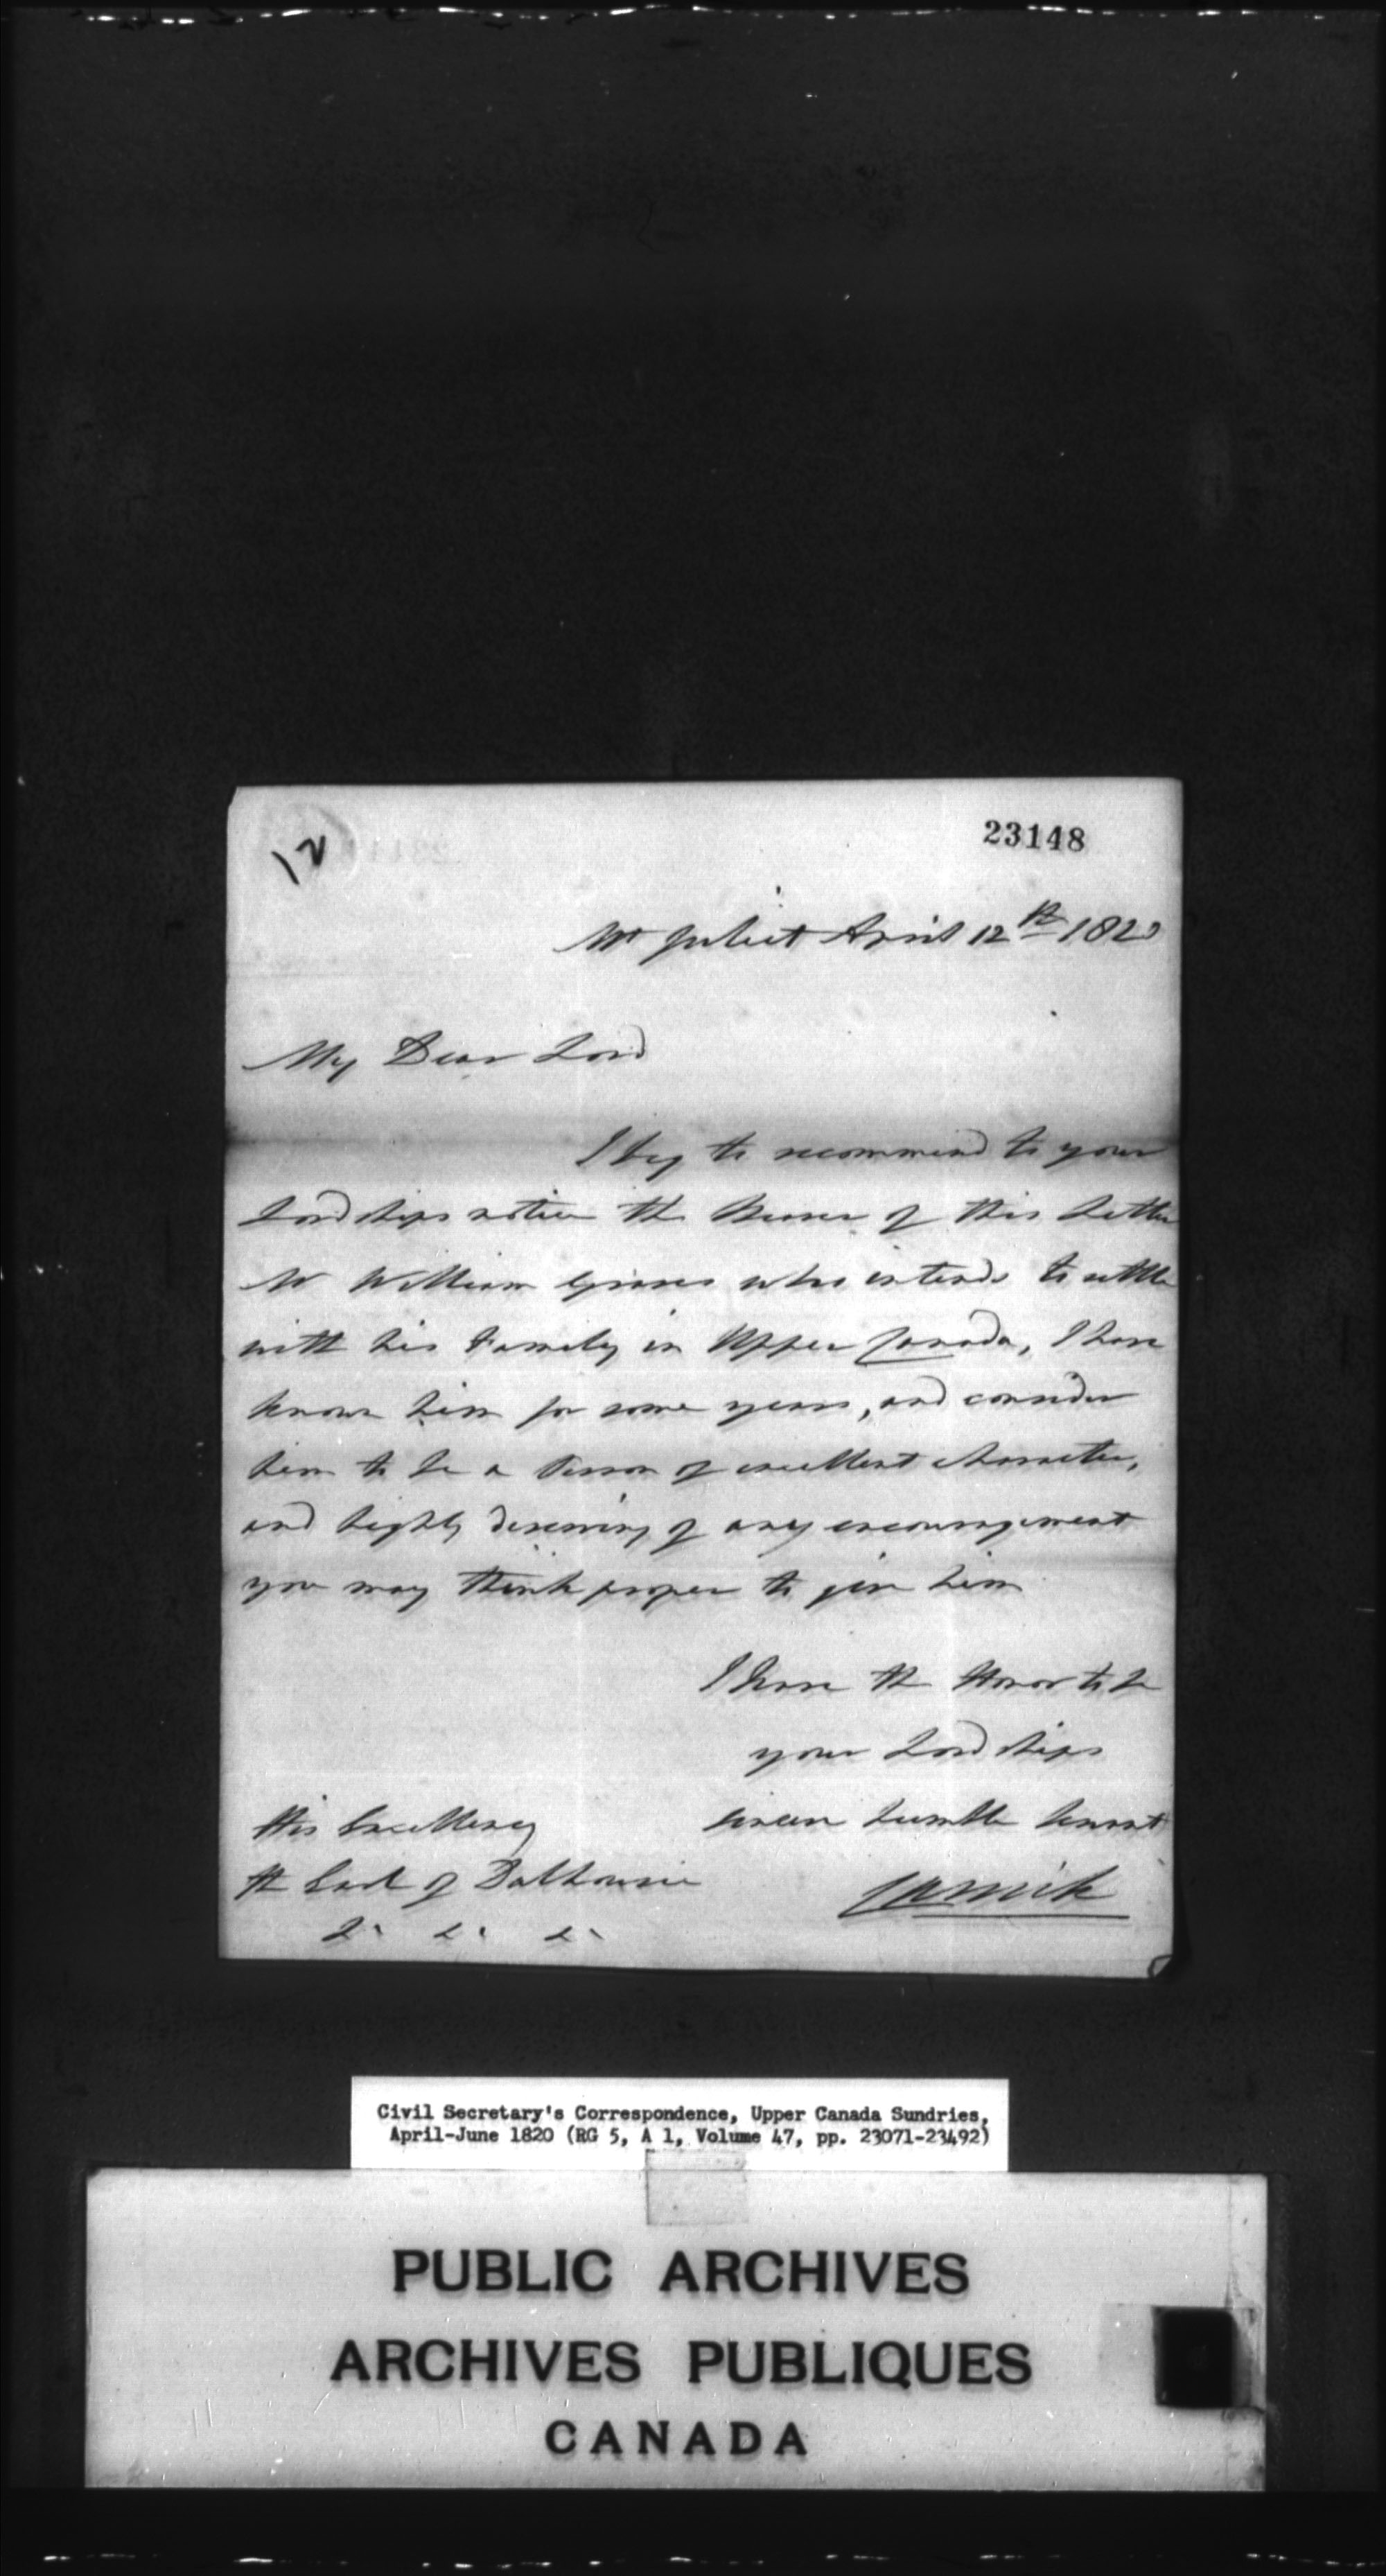 12
23148
Mt Juliet April 12th 1820
My Dear Lord
I beg to recommend to your
Lordships notice the bearer of this Letter
Mr William Graves who intends to settle
with his Family in Upper Canada, I have
known him for some years, and consider
him to be a Person of excellent character,
and highly deserving of any encouragement
you may think proper to give him
I have the Honor to be
your Lordships
sincere humble Servant
Carrick
His Excellency
the Earl of Dalhousie
&c &c &c
Civil Secretary's Correspondence, Upper Canada Sundries,
April-June 1820 (RG 5, A 1, Volume 47, pp. 23071-23492)
PUBLIC ARCHIVES
ARCHIVES PUBLIQUES
CANADA